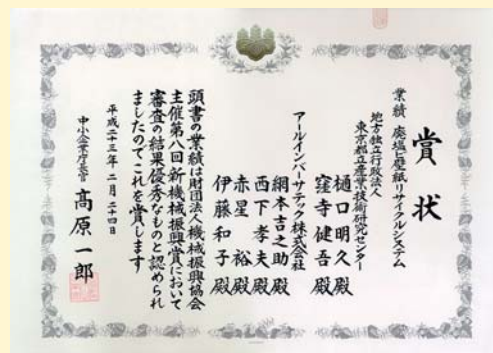 賞状
業績 廃塩ビ壁紙リサイクルシステム
地方独立行政法人
東京都立産業技術研究センター
樋口明久殿
窪寺健吾殿
アールインバーサテック株式会社
網本吉之助殿
西下孝夫殿
赤星裕殿
伊藤和子殿
頭書の業績は財団法人機械振興協会
主催第八回新機械振興賞において
審査の結果優秀なものと認められ
ましたのでこれを賞します
平成二十三年二月二十四日
中小企業庁長官 高原一郎